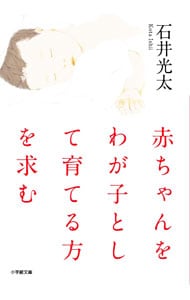 石井光太
Kota Ishii
赤ちゃんを
わが子とし
て育てる方
を求む
小学館文庫